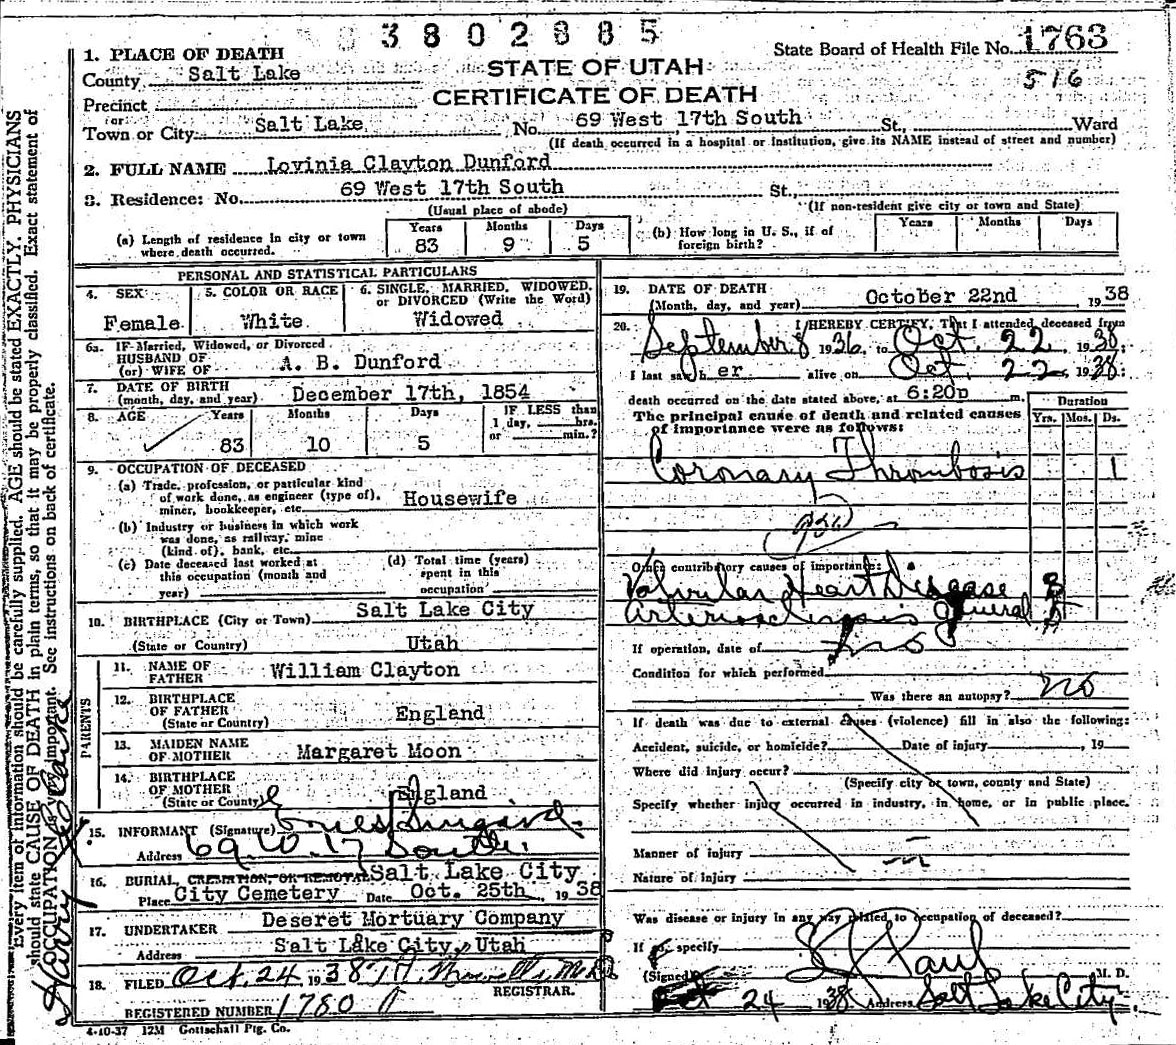 3802885
State Board of Health File No. 1763
516
STATE OF UTAH
CERTIFICATE OF DEATH
1. PLACE OF DEATH
County Salt Lake
Precinct
or
Town or City Salt Lake No. 69 West 17th South St., Ward
(If death occurred in a hospital or institution, give its NAME instead of street and number)
2. FULL NAME Lovinia Clayton Dunford
3. Residence: No. 69 West 17th South St.,
(Usual place of abode) (If non-resident give city or town and State)
(a) Length of residence in city or town where death occurred. Years 83 Months 9 Days 5
(b) How long in U. S., if of foreign birth? Years Months Days
PERSONAL AND STATISTICAL PARTICULARS
4. SEX Female
5. COLOR OR RACE White
6. SINGLE, MARRIED, WIDOWED, or DIVORCED (Write the Word) Widowed
6a. IF Married, Widowed, or Divorced
HUSBAND OF
(or) WIFE OF A. B. Dunford
7. DATE OF BIRTH
(month, day, and year) December 17th, 1854
8. AGE Years 83 Months 10 Days 5 IF LESS than 1 day, hrs. or min.?
9. OCCUPATION OF DECEASED
(a) Trade, profession, or particular kind
of work done, as engineer (type of),
miner, bookkeeper, etc. Housewife
(b) Industry or business in which work
was done, as railway, mine
(kind of), bank, etc.
(c) Date deceased last worked at
this occupation (month and
year)
(d) Total time (years)
spent in this
occupation
10. BIRTHPLACE (City or Town) Salt Lake City
(State or Country) Utah
PARENTS
11. NAME OF
FATHER William Clayton
12. BIRTHPLACE
OF FATHER
(State or Country) England
13. MAIDEN NAME
OF MOTHER Margaret Moon
14. BIRTHPLACE
OF MOTHER
(State or Country) England
15. INFORMANT (Signature)
Address 69 W. 17 South.
16. BURIAL, CREMATION, OR REMOVAL Salt Lake City
Place City Cemetery Date Oct. 25th, 1938
17. UNDERTAKER Deseret Mortuary Company
Address Salt Lake City, Utah
18. FILED Oct. 24 1938
REGISTRAR.
REGISTERED NUMBER 1780
4-10-37 12M Gottschall Ptg. Co.
19. DATE OF DEATH
(Month, day, and year) October 22nd, 1938
20. I HEREBY CERTIFY, That I attended deceased from
September 8 1936, to Oct. 22, 1938;
I last saw her alive on Oct. 22, 1938;
death occurred on the date stated above, at 6:20p m.
The principal cause of death and related causes
of importance were as follows:
Duration
Yrs. Mos. Ds.
Coronary Thrombosis 1
Other contributory causes of importance:
Valvular Heart Disease
Arteriosclerosis general
If operation, date of no
Condition for which performed
Was there an autopsy? no
If death was due to external causes (violence) fill in also the following:
Accident, suicide, or homicide? Date of injury , 19
Where did injury occur?
(Specify city or town, county and State)
Specify whether injury occurred in industry, in home, or in public place.
Manner of injury
Nature of injury
Was disease or injury in any way related to occupation of deceased?
If so, specify
(Signed) Paul M. D.
Oct 24 1938 Address Salt Lake City.
Every item of information should be carefully supplied. AGE should be stated EXACTLY. PHYSICIANS
should state CAUSE OF DEATH in plain terms, so that it may be properly classified. Exact statement of
OCCUPATION is very important. See instructions on back of certificate.